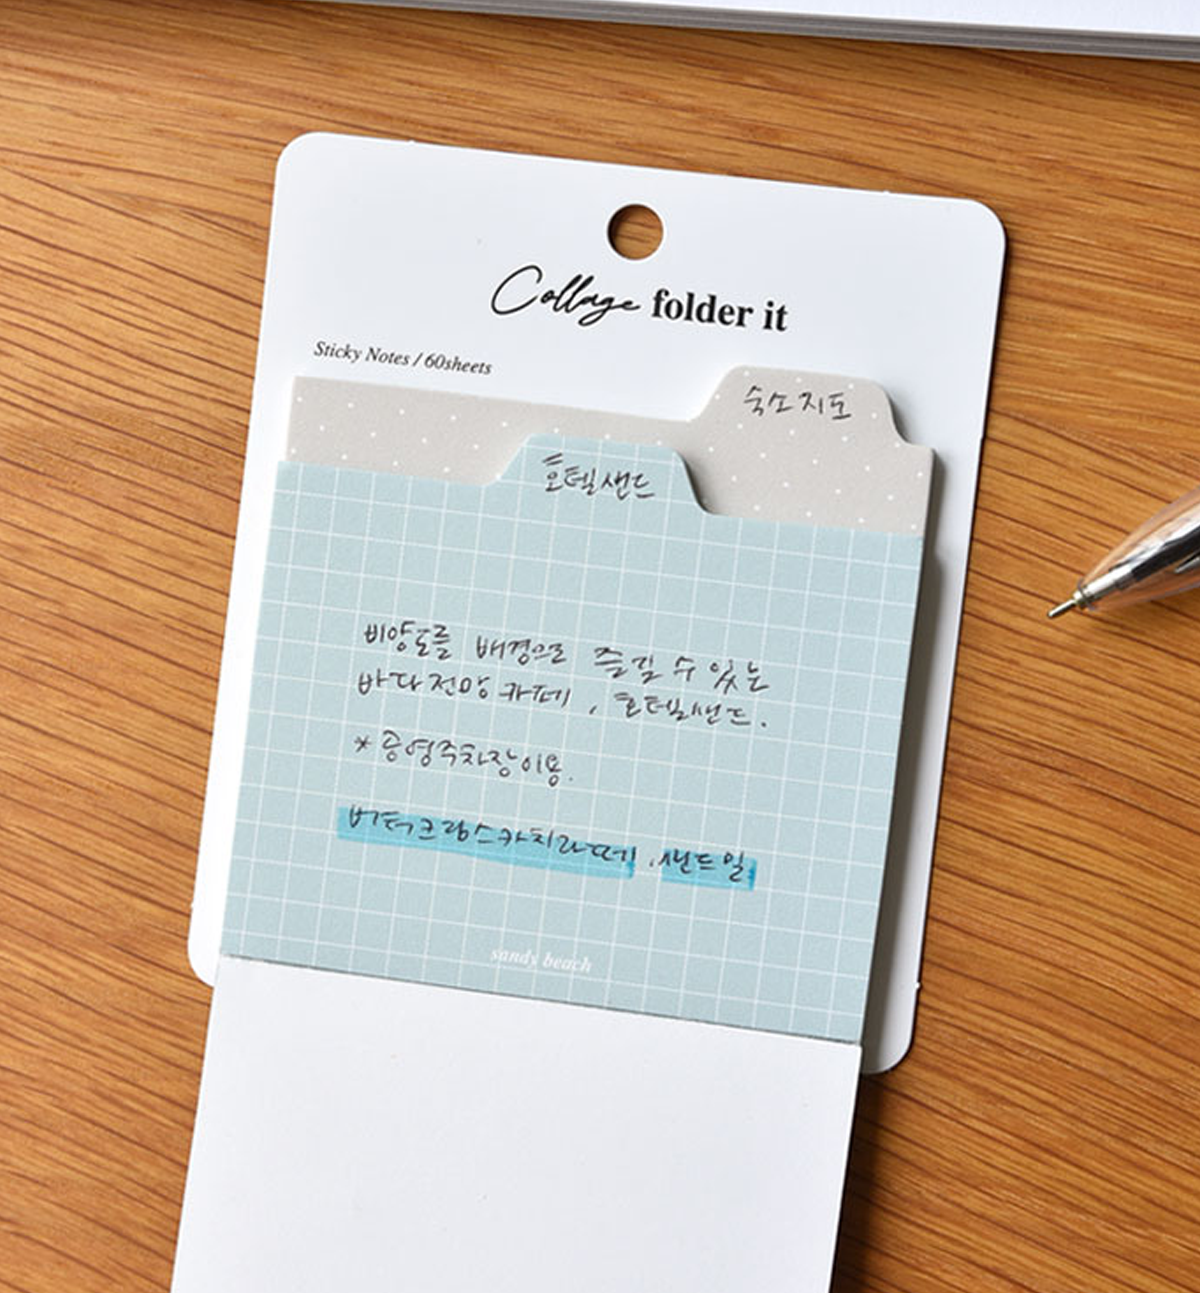 Collage folder it
Sticky Notes / 60sheets
숙소지도
호텔샌드
비양도를 배경으로 즐길 수 있는
바다전망 카페, 호텔샌드.
* 공영주차장이용.
버터크림스카치라떼, 샌드밀
sandy beach